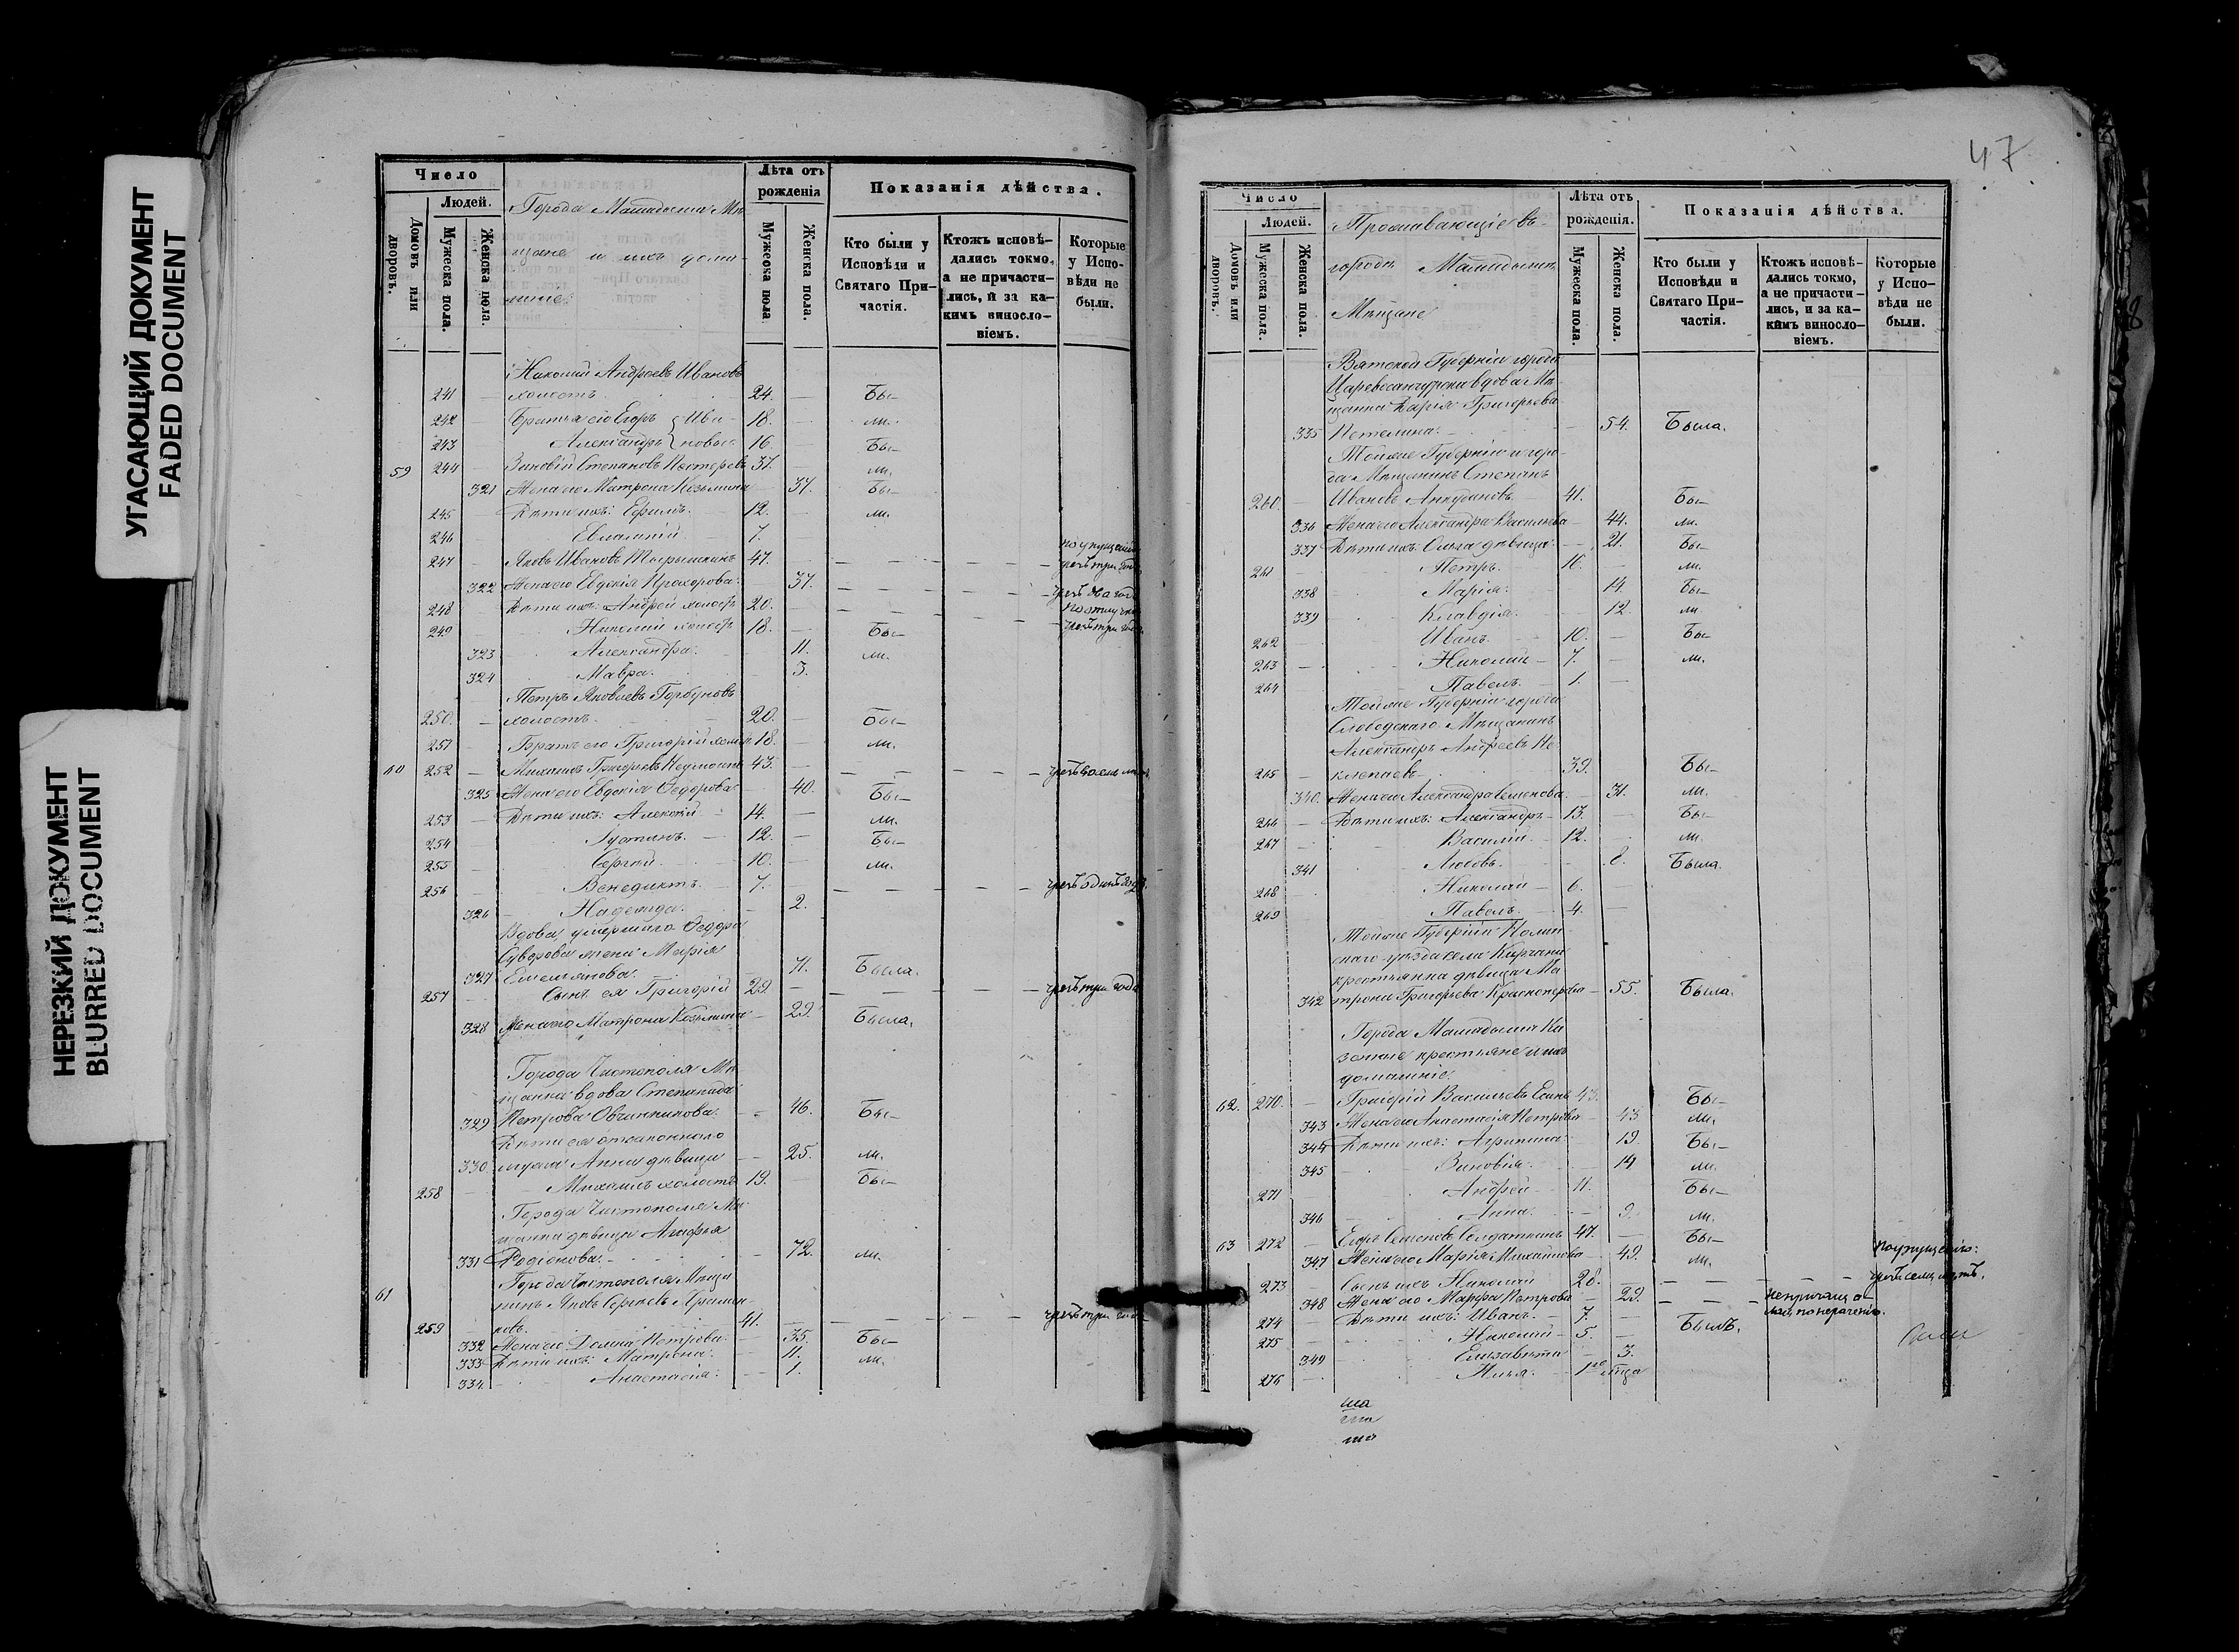 УГАСАЮЩИЙ ДОКУМЕНТ
FADED DOCUMENT
НЕРЕЗКИЙ ДОКУМЕНТ
BLURRED DOCUMENT
Число
Людей.
Домовъ или дворовъ.
Мужеска пола.
Женска пола.
Города Мамадыша Мѣ-
щане и ихъ дома-
шніе
Лѣта отъ рожденія
Мужеска пола
Женска пола.
Показанія дѣйства.
Кто были у Исповѣди и Святаго Причастія.
Ктожъ исповѣдались токмо, а не причастились, и за какимъ винословіемъ.
Которые у Исповѣди не были.
Николай Андреевъ Ивановъ
241 — холостъ. 24. — Бы-
242 — Братья его Егоръ } Ива- 18. — ли.
243 Александръ } новы. 16. — Бы-
59 244 — Зиновій Степановъ 37. — ли.
321 Жена его Матрона Козьмина — 37. Бы-
245 Дѣти ихъ: Ефимъ. 12. — ли.
246 Евлампій 7.
247 — Яковъ Ивановъ 47. по упущенію чрезъ три года
322 Жена его Евдокія Прохорова. — 37. чрезъ два года
248 Дѣти ихъ: Андрей холостъ 20. по отлучкѣ
249 — Николай холостъ 18. — Бы- чрезъ три года
323 Александра. — 11. ли.
324 Мавра. 3.
Петръ Яковлевъ Горбуновъ
250. — холостъ. 20. — Бы-
251 — Братъ его Григорій холостъ 18. — ли.
60 252 — Михаилъ Григорьевъ 43. —
325 Жена его Евдокія Федорова — 40. Бы-
253 — Дѣти ихъ: Алексѣй 14. — ли.
254 — Іустинъ. 12. — Бы-
255 — Сергѣй. 10. — ли.
256 — Венедиктъ. 7. — чрезъ одинъ годъ.
326 — Надежда. — 2.
Вдова, умершаго Федора
Суворова жена Марія
327 Емельянова. 71. Была.
257 — Сынъ ея Григорій 29. — чрезъ три года
328 Жена его Матрона Козьмина — 29. Была.
Города Чистополя Мѣ-
щанка вдова Степанида
329 Петрова Овчинникова. — 46. Бы-
Дѣти ея отъ законнаго
330 мужа Анна дѣвица — 25. ли.
258 — Михаилъ холостъ 19. — Бы-
Города Чистополя Мѣ-
щанка дѣвица Агафья
331 Родіонова. — 72. ли.
61 Города Чистополя Мѣща-
нинъ Яковъ Сергѣевъ
259 41. чрезъ три года
332 Жена его Домна Петрова. — 35. Бы-
333 Дѣти ихъ: Матрона. — 11. ли.
334 Анастасія. — 1.
47
Число
Людей.
Домовъ или дворовъ.
Мужеска пола.
Женска пола.
Проживающіе въ
городѣ Мамадышѣ
Мѣщане
Лѣта отъ рожденія.
Мужеска пола.
Женска пола.
Показанія дѣйства.
Кто были у Исповѣди и Святаго Причастія.
Ктожъ исповѣдались токмо, а не причастились, и за какимъ винословіемъ.
Которые у Исповѣди не были.
Вятской Губерніи города
Царевосанчурска вдова Мѣ-
щанка Дарія Григорьева
335 54. Была.
Тойже Губерніи и горо-
да Мѣщанинъ Степанъ
260. — Ивановъ Анкудиновъ 41. Бы-
336 Жена его Александра Васильева — 44. ли.
337 Дѣти ихъ: Ольга дѣвица: — 21. Бы-
261 Петръ. 16. — ли.
338 Марія: 14. Бы-
339 Клавдія: 12. ли.
262 — Иванъ. 10. — Бы-
263 — Николай — 7. — ли.
264 — Павелъ. 1. —
Тойже Губерніи города
Слободскаго Мѣщанинъ
Александръ Андреевъ Не-
265 — клепаевъ 39. Бы-
340. Жена его Александра Семенова. — 31. ли.
266 — Дѣти ихъ: Александръ — 13. — Бы-
267 — Василій. — 12. ли.
341 Любовь. — 8. Была.
268 — Николай — 6. —
269 Павелъ. 4. —
Тойже Губерніи
скаго уѣзда села
крестьянка дѣвица Ма-
342 трона Григорьева — 55. Была.
Города Мамадыша Ка-
зенные крестьяне и ихъ
домашніе.
62. 270. — Григорій Васильевъ 43. Бы-
343 Жена его Анастасія Петрова — 43 ли.
344 Дѣти ихъ: Агрипина: — 19. Бы-
345 — Зиновія: — 14 ли.
271 — Андрей — 11. Бы-
346 — Анна. — 9. ли.
63 272 — Егоръ Семеновъ Солдаткинъ 47. — Бы-
347 Жена его Марія Михайлова — 49. ли. по упущенію:
273 Сынъ ихъ Николай 28. чрезъ семь лѣтъ.
348 Жена его Марфа Петрова — 29. не причаща-
274 — Дѣти ихъ: Иванъ. 7. — Былъ. лась по нераченію.
275 Николай — 5. —
349 Елизавета — 3.
276 — Илья.